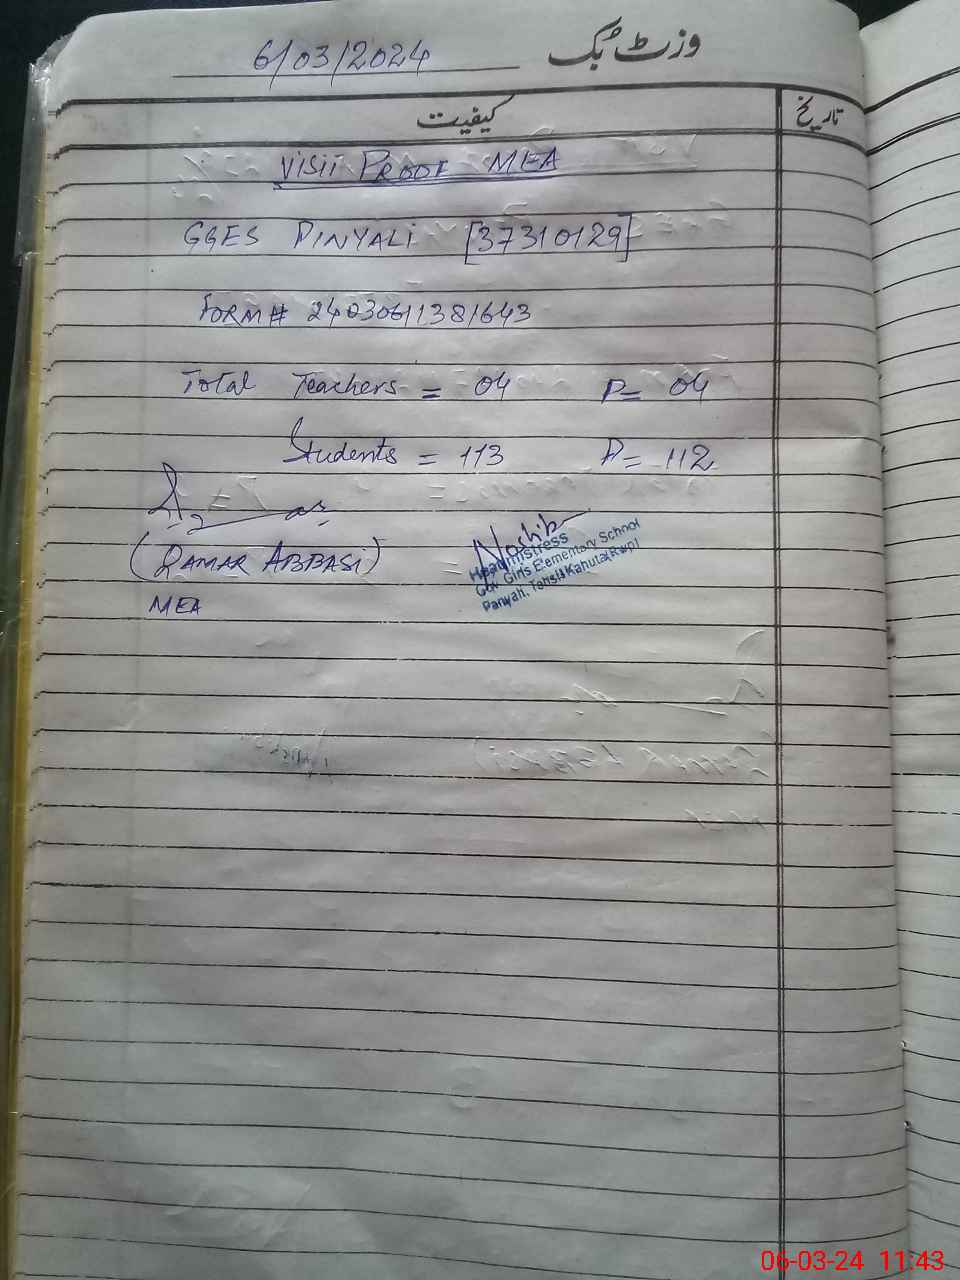 وزٹ بک
6/03/2024
تاریخ
کیفیت
Visit Proof MEA
GGES PINYALI [37310129]
Form# 24030611381643
Total Teachers = 04 P= 04
Students = 113 P= 112
(QAMAR ABBASI)
MEA
Headmistress
Gov Girls Elementary School
Panyali, Tehsil Kahuta(Rwp)
06-03-24 11:43